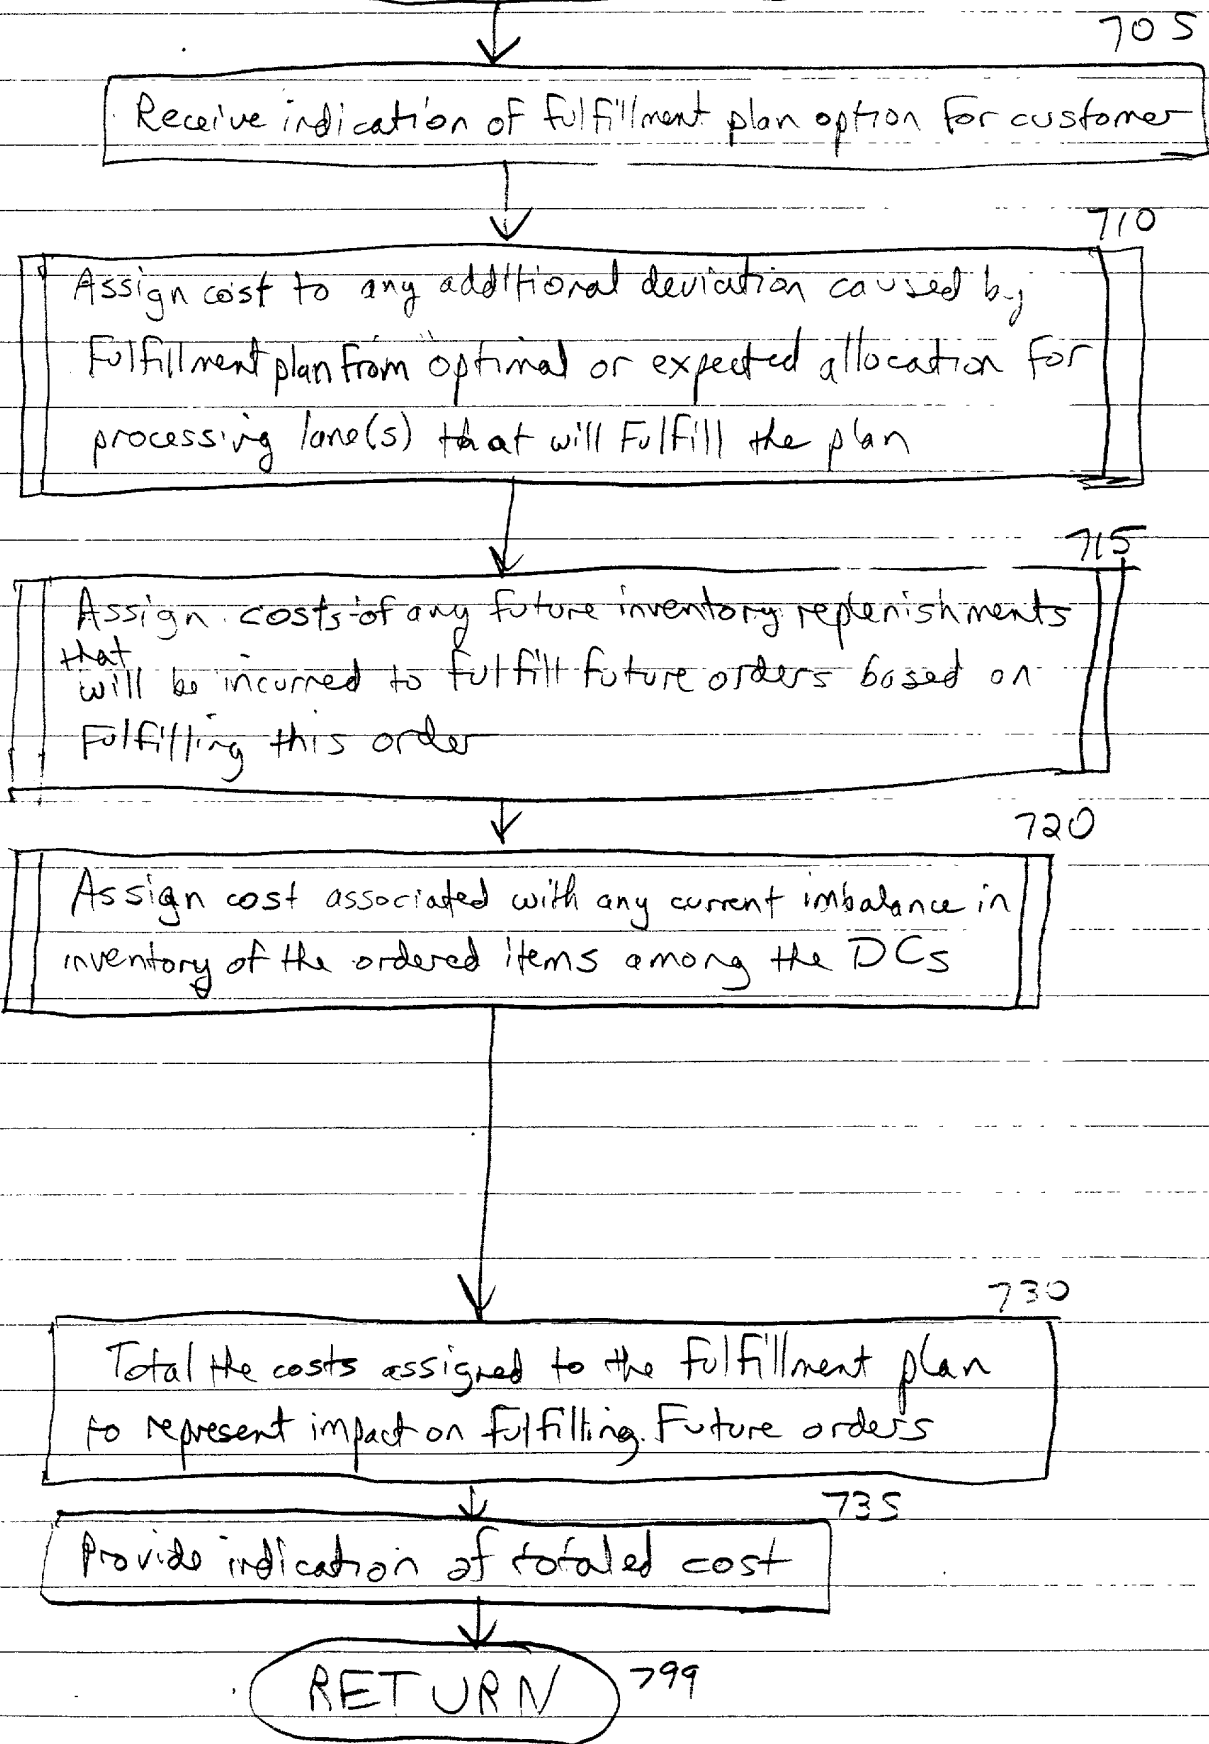 705
Receive indication of fulfillment plan option for customer
710
Assign cost to any additional deviation caused by
fulfillment plan from optimal or expected allocation for
processing lane(s) that will fulfill the plan
715
Assign costs of any future inventory replenishments
that
will be incurred to fulfill future orders based on
fulfilling this order
720
Assign cost associated with any current imbalance in
inventory of the ordered items among the DCs
730
Total the costs assigned to the fulfillment plan
to represent impact on fulfilling future orders
735
Provide indication of totaled cost
RETURN 799